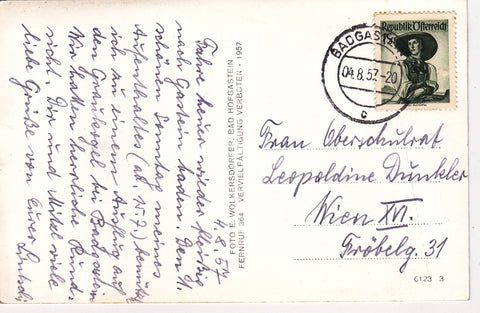 4.8.57
Fahre heuer wieder fleißig
nach Gastein baden. Den 11.
schönen Sonntag meines
Aufenthaltes (ab 15.7.) benutzte
ich zu einem Ausflug auf
den Graukogel bei Badgastein
Wir hatten herrliche Rund-
sicht. Dir und Mitzi viele
liebe Grüße von Eurer
FOTO E. WOLKERSDORFER, BAD HOFGASTEIN - 1957
FERNRUF 364 VERVIELFÄLTIGUNG VERBOTEN
BADGASTEIN
04.8.57-20
c
Republik Österreich
Frau Oberschulrat
Leopoldine Dunkler
Wien XVI.
Fröbelg. 31
6123 3